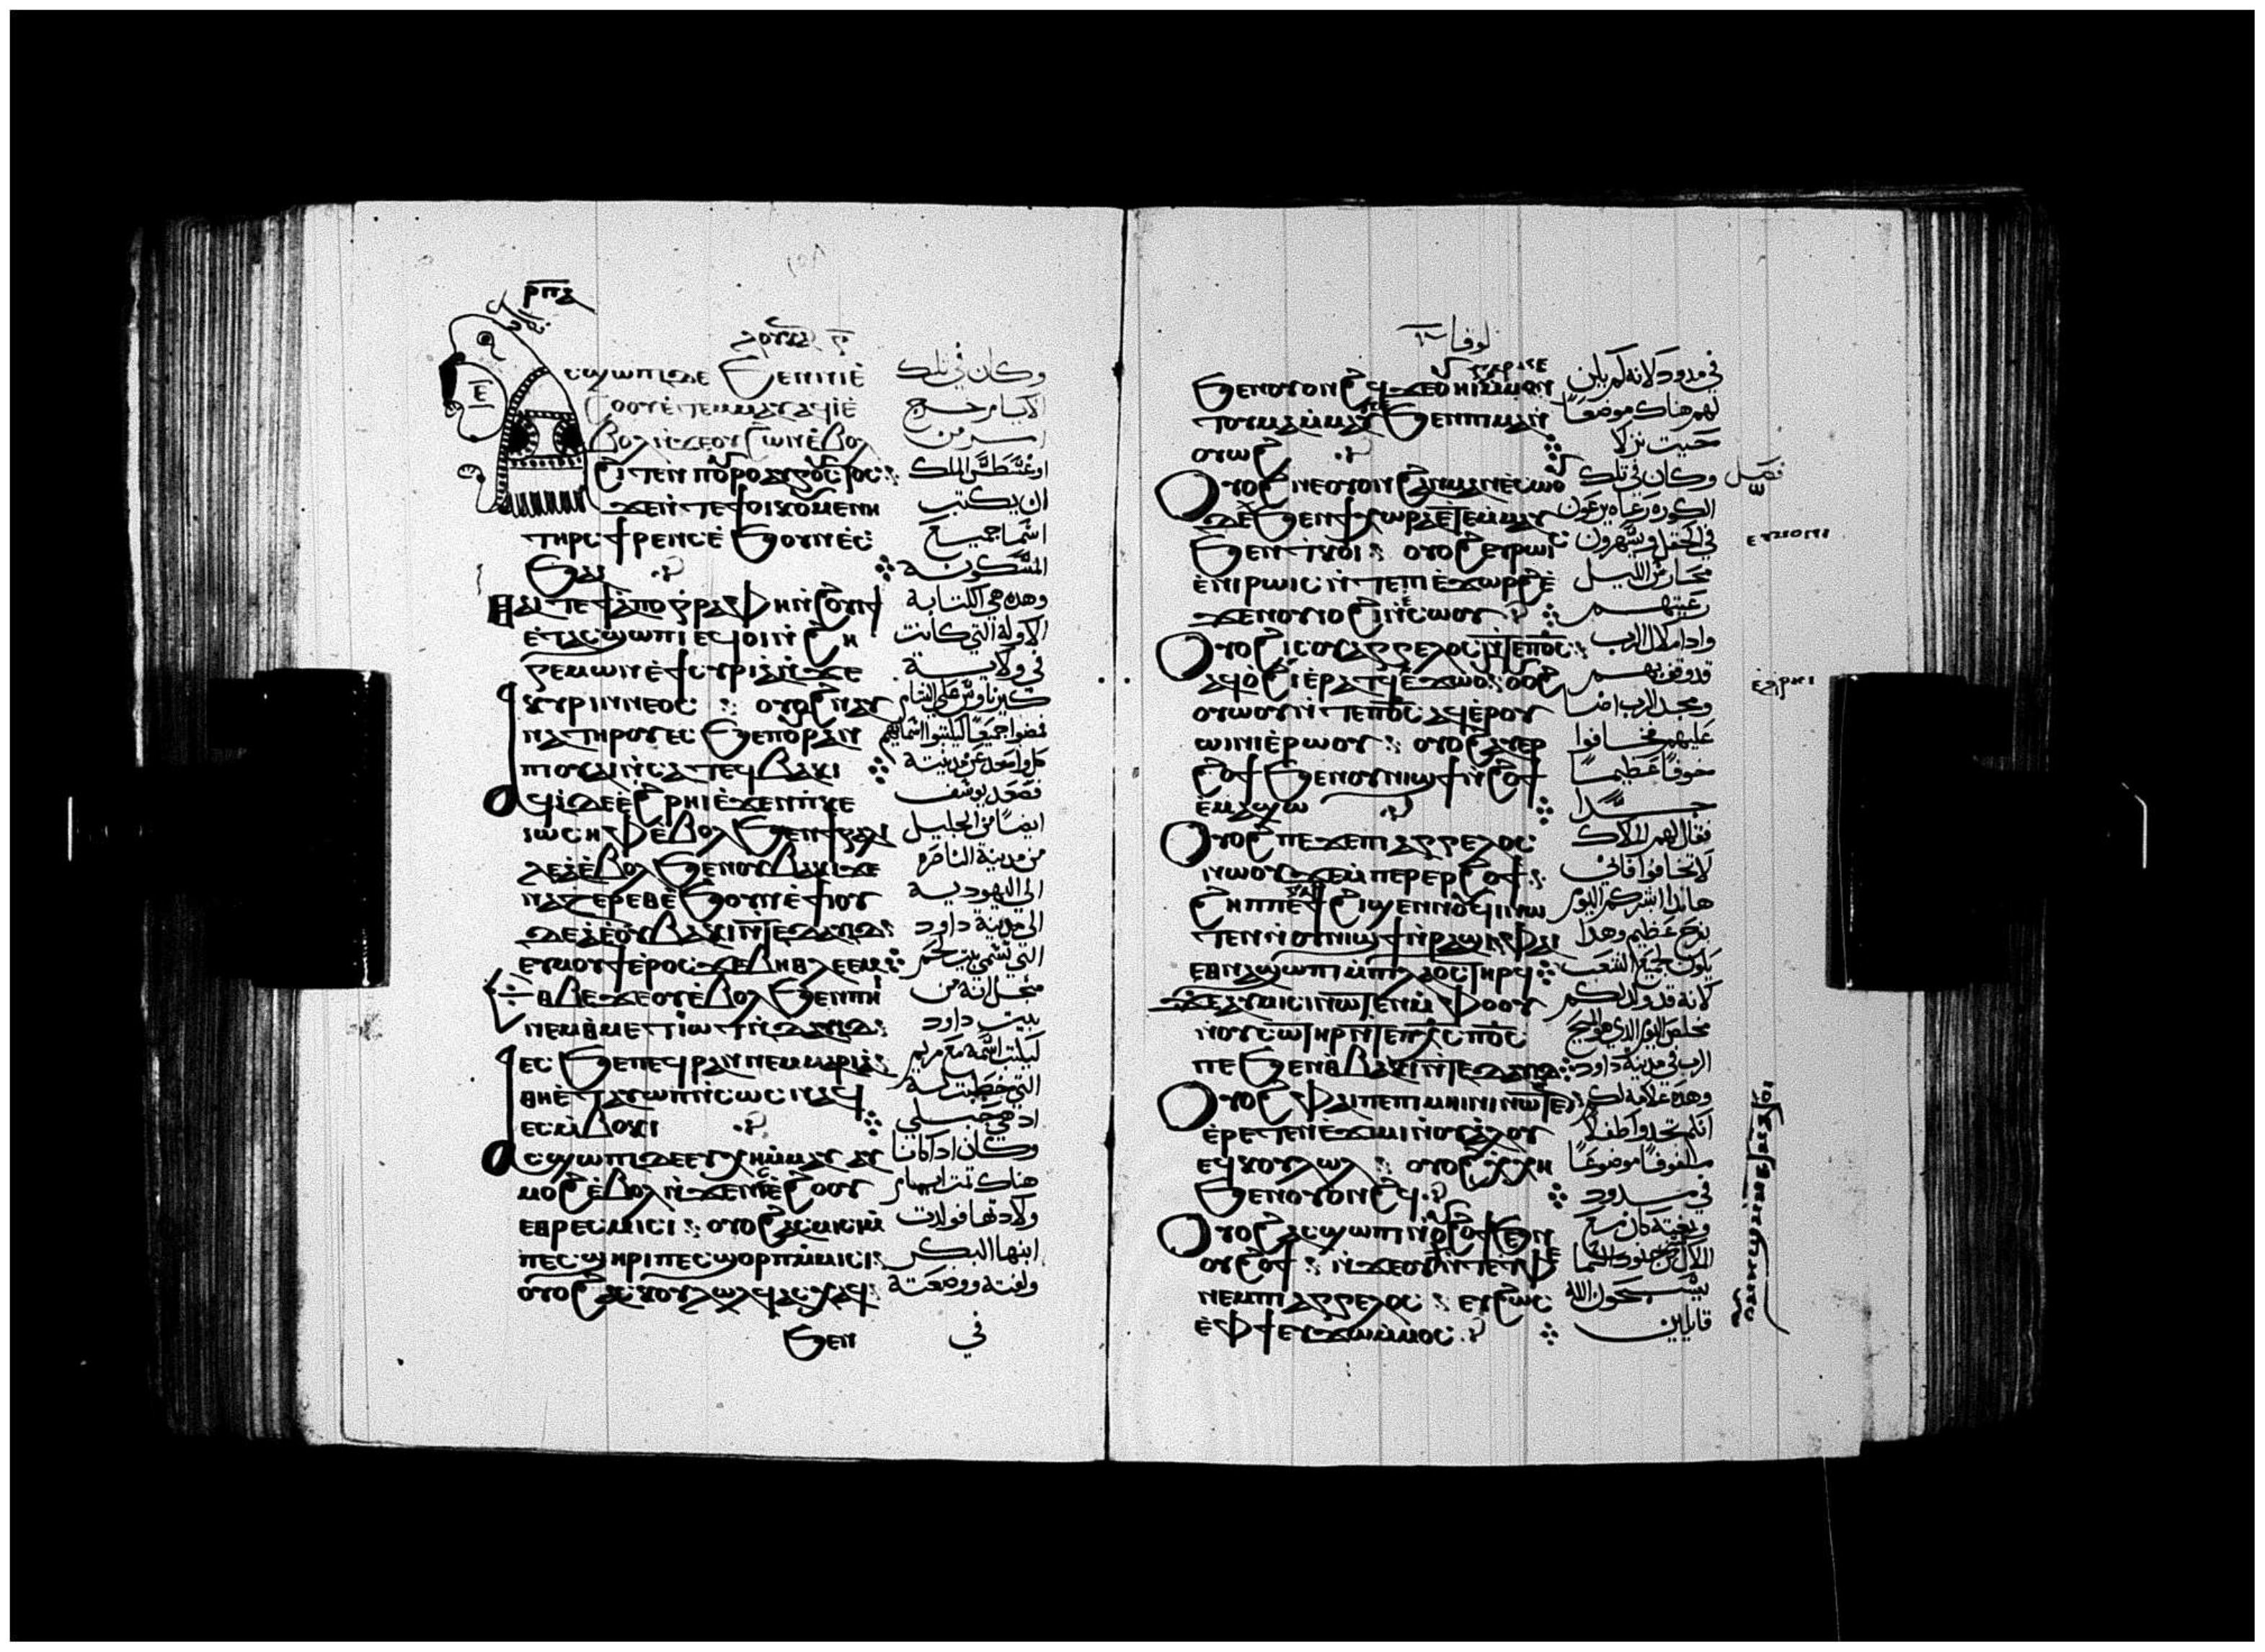 ⲣⲡⲁ
ⲗⲟⲩⲕⲁ
ⲥϣⲱⲡⲓⲇⲉ ϧⲉⲛⲛⲓⲉ̀
ϩⲟⲟⲩⲉ̀ⲧⲉⲙⲙⲁⲩⲁϥⲓⲉ̀
ⲃⲟⲗⲛ̀ϫⲉⲟⲩϩⲱⲛⲉ̀ⲃⲟⲗ
ϩⲓⲧⲉⲛ ⲡⲟⲩⲣⲟⲁⲩⲅⲟⲥⲧⲟⲥ
ϫⲉⲛ̀ⲧⲉϯⲟⲓⲕⲟⲩⲙⲉⲛⲏ
ⲧⲏⲣⲥϯⲣⲉⲛⲥⲉ̀ ϧⲟⲩⲛⲉ̀ⲥ
ϧⲁⲓ
ⲑⲁⲓⲧⲉϯⲁ̀ⲡⲟⲅⲣⲁⲫⲏⲛ̀ϩⲟⲩⲓϯ
ⲉ̀ⲧⲁⲥϣⲱⲡⲓ ⲉϥⲟⲓⲛ̀ϩⲏ
ⲅⲉⲙⲱⲛⲉ̀ϯⲥⲩⲣⲓⲁ̀ⲛ̀ϫⲉ
ⲕⲩⲣⲓⲛⲛⲉⲟⲥ ⲟⲩⲟϩⲛⲁⲩ
ⲛⲁⲧⲏⲣⲟⲩⲉⲥϧⲉⲡⲟⲩⲣⲁⲛ
ⲡⲓⲟⲩⲁⲓⲛ̀ⲥⲁⲧⲉϥⲃⲁⲕⲓ
ⲁϥⲓ̀ⲇⲉⲉ̀ϩⲣⲏⲓⲉ̀ϫⲉⲛⲡ̀ⲕⲉ
ⲓⲱⲥⲏⲫⲉ̀ⲃⲟⲗ ϧⲉⲛϯⲅⲁⲗⲓ
ⲗⲉⲁ̀ⲉ̀ⲃⲟⲗϧⲉⲛⲟⲩⲃⲁⲕⲓϫⲉ
ⲛⲁⲍⲉⲣⲉⲑⲉ̀ϧⲟⲩⲛⲉ̀ϯⲓⲟⲩ
ⲇⲉⲁ̀ⲉ̀ⲟⲩⲃⲁⲕⲓⲛ̀ⲧⲉⲇⲁⲩⲓⲇ
ⲉⲩⲙⲟⲩϯⲉ̀ⲣⲟⲥϫⲉⲃⲏⲑⲗⲉⲉⲙ
ⲉⲑⲃⲉϫⲉⲟⲩⲉ̀ⲃⲟⲗϧⲉⲛⲡⲏⲓ
ⲛⲉⲙⲑⲙⲉⲧⲓⲱⲧⲛ̀ⲇⲁⲩⲓⲇ
ⲉⲥϧⲉⲡⲉϥⲣⲁⲛⲛⲉⲙⲙⲁⲣⲓⲁ
ⲑⲏⲉ̀ⲧⲁⲩⲱⲡⲛ̀ⲥⲱⲥⲛⲁϥ
ⲉⲥⲙ̀ⲃⲟⲕⲓ
ⲁⲥϣⲱⲡⲓⲇⲉⲉⲩⲭⲏⲙ̀ⲙⲁⲩ ⲁⲩ
ⲙⲟϩⲉ̀ⲃⲟⲗⲛ̀ϫⲉⲛⲓⲉ̀ϩⲟⲟⲩ
ⲉⲑⲣⲉⲥⲙⲓⲥⲓ ⲟⲩⲟϩⲁⲥⲙⲓⲥⲓⲙ̀
ⲡⲉⲥϣⲏⲣⲓⲡⲉⲥϣⲟⲣⲡⲙ̀ⲙⲓⲥⲓ
ⲟⲩⲟϩⲁⲥⲕⲟⲩⲗⲱⲗϥⲁⲥⲭⲁϥ
ϧⲉⲛ
وكان في تلك
الايام خرج
امر من
اوغسطس الملك
ان يكتب
اسما جميع
المسكونة
وهذه هي الكتابة
الاولة التي كانت
في ولاية
كيرناوس على الشام
فمضوا جميعا ليكتبوا اسمائهم
كل واحد عن مدينته
فصعد يوسف
ايضا من الجليل
من مدينة الناصرة
الى اليهودية
الى مدينة داود
التي تسمى بيت لحم
من اجل انه من
بيت داود
ليكتب اسمه مع مريم
التي خطبت له
اذ هي حبلى
وكان اذ كانا
هناك تمت ايام
ولادتها فولدت
ابنها البكر
ولفته ووضعته
في
لوقا
ϧⲉⲛⲟⲩⲟⲛϩϥ ϫⲉⲟⲩⲏⲓⲙ̀ⲙⲟⲛ
ⲧⲟⲩⲙⲁⲙ̀ⲙⲁⲩ ϧⲉⲛⲡⲓⲙⲁⲛ̀
ⲟⲩⲱϩ
ⲟⲩⲟϩⲛⲉⲟⲩⲟⲛϩⲁⲛⲙⲁⲛⲉ̀ⲥⲱⲟⲩ
ⲇⲉϧⲉⲛϯⲭⲱⲣⲁⲉ̀ⲧⲉⲙⲙⲁⲩ
ϧⲉⲛⲧ̀ⲕⲟⲓ ⲟⲩⲟϩⲉⲩⲣⲱⲓⲥ
ⲉ̀ⲛⲓⲣⲱⲓⲥⲛ̀ⲧⲉⲡⲓⲉ̀ϫⲱⲣϩⲉ̀
ϫⲉⲛⲟⲩⲟϩⲓⲛ̀ⲉ̀ⲥⲱⲟⲩ
ⲟⲩⲟϩⲓⲥⲟⲩⲁⲅⲅⲉⲗⲟⲥⲛ̀ⲧⲉⲡ⳪
ⲁϥⲟ̀ϩⲓⲉ̀ⲣⲁⲧϥⲉ̀ϫⲱⲟⲩ ⲟⲩⲟϩ
ⲟⲩⲱⲟⲩⲛ̀ⲧⲉⲡ⳪ ⲁϥⲉ̀ⲣⲟⲩ
ⲱⲓⲛⲓⲉ̀ⲣⲱⲟⲩ ⲟⲩⲟϩⲁⲩⲉⲣ
ϩⲟϯϧⲉⲛⲟⲩⲛⲓϣϯⲛ̀ϩⲟϯ
ⲉ̀ⲙⲁϣⲱ
ⲟⲩⲟϩⲡⲉϫⲉⲡⲓⲁⲅⲅⲉⲗⲟⲥ
ⲛⲱⲟⲩϫⲉⲙ̀ⲡⲉⲣⲉⲣϩⲟϯ
ϩⲏⲡⲡⲉϯϩⲓϣⲉⲛⲛⲟⲩϥⲓⲛⲱ
ⲧⲉⲛⲛ̀ⲟⲩⲛⲓϣϯⲛ̀ⲣⲁϣⲓⲫⲁⲓ
ⲉⲑⲛⲁϣⲱⲡⲓⲙ̀ⲡⲓⲗⲁⲟⲥⲧⲏⲣϥ
ϫⲉⲁⲩⲙⲓⲥⲓⲛⲱⲧⲉⲛⲙ̀ⲫⲟⲟⲩ
ⲛⲟⲩⲥⲱⲧⲏⲣⲛ̀ⲧⲉⲡⲭⲥⲡ⳪
ⲡⲉϧⲉⲛⲑⲃⲁⲕⲓⲛ̀ⲧⲉⲇⲁⲩⲓⲇ
ⲟⲩⲟϩⲫⲁⲓⲡⲉⲡⲓⲙⲏⲓⲛⲓⲛⲱⲧⲉⲛ
ⲉ̀ⲣⲉⲧⲉⲛⲉϫⲓⲙⲓⲛ̀ⲟⲩⲁ̀ⲗⲟⲩ
ⲉϥⲕⲟⲩⲗⲱⲗ ⲟⲩⲟϩϥⲭⲏ
ϧⲉⲛⲟⲩⲟⲛϩϥ
ⲟⲩⲟϩⲁⲥϣⲱⲡⲓⲛ̀ⲟⲩϩⲟϯϧⲉⲛ
ⲟⲩϩⲟϯ
ⲛⲉⲙⲡⲓⲁⲅⲅⲉⲗⲟⲥ ⲉⲩϩⲱⲥ
ⲉ̀ⲫϯⲉⲩϫⲱⲙ̀ⲙⲟⲥ
في مدود لانه لم يكن
لهم هناك موضعا
حيث نزلا
فصل وكان في تلك
الكورة رعاة يرعون
في الحقل ويسهرون
محارس الليل
رعيتهم
واذا ملاك الرب
قد وقف بهم
ومجد الرب اضا
عليهم فخافوا
خوفا عظيما
جدا
فقال لهم الملاك
لا تخافوا فاني
هانذا ابشركم اليوم
بفرح عظيم وهذا
يكون لجميع الشعب
لانه قد ولد لكم
مخلص اليوم الذي هو المسيح
الرب في مدينة داود
وهذه علامة لكم
انكم تجدوا طفلا
ملفوفا موضوعا
في مدود
وبغتة كان مع
الملاك من جنود السما
يسبحون الله
قايلين